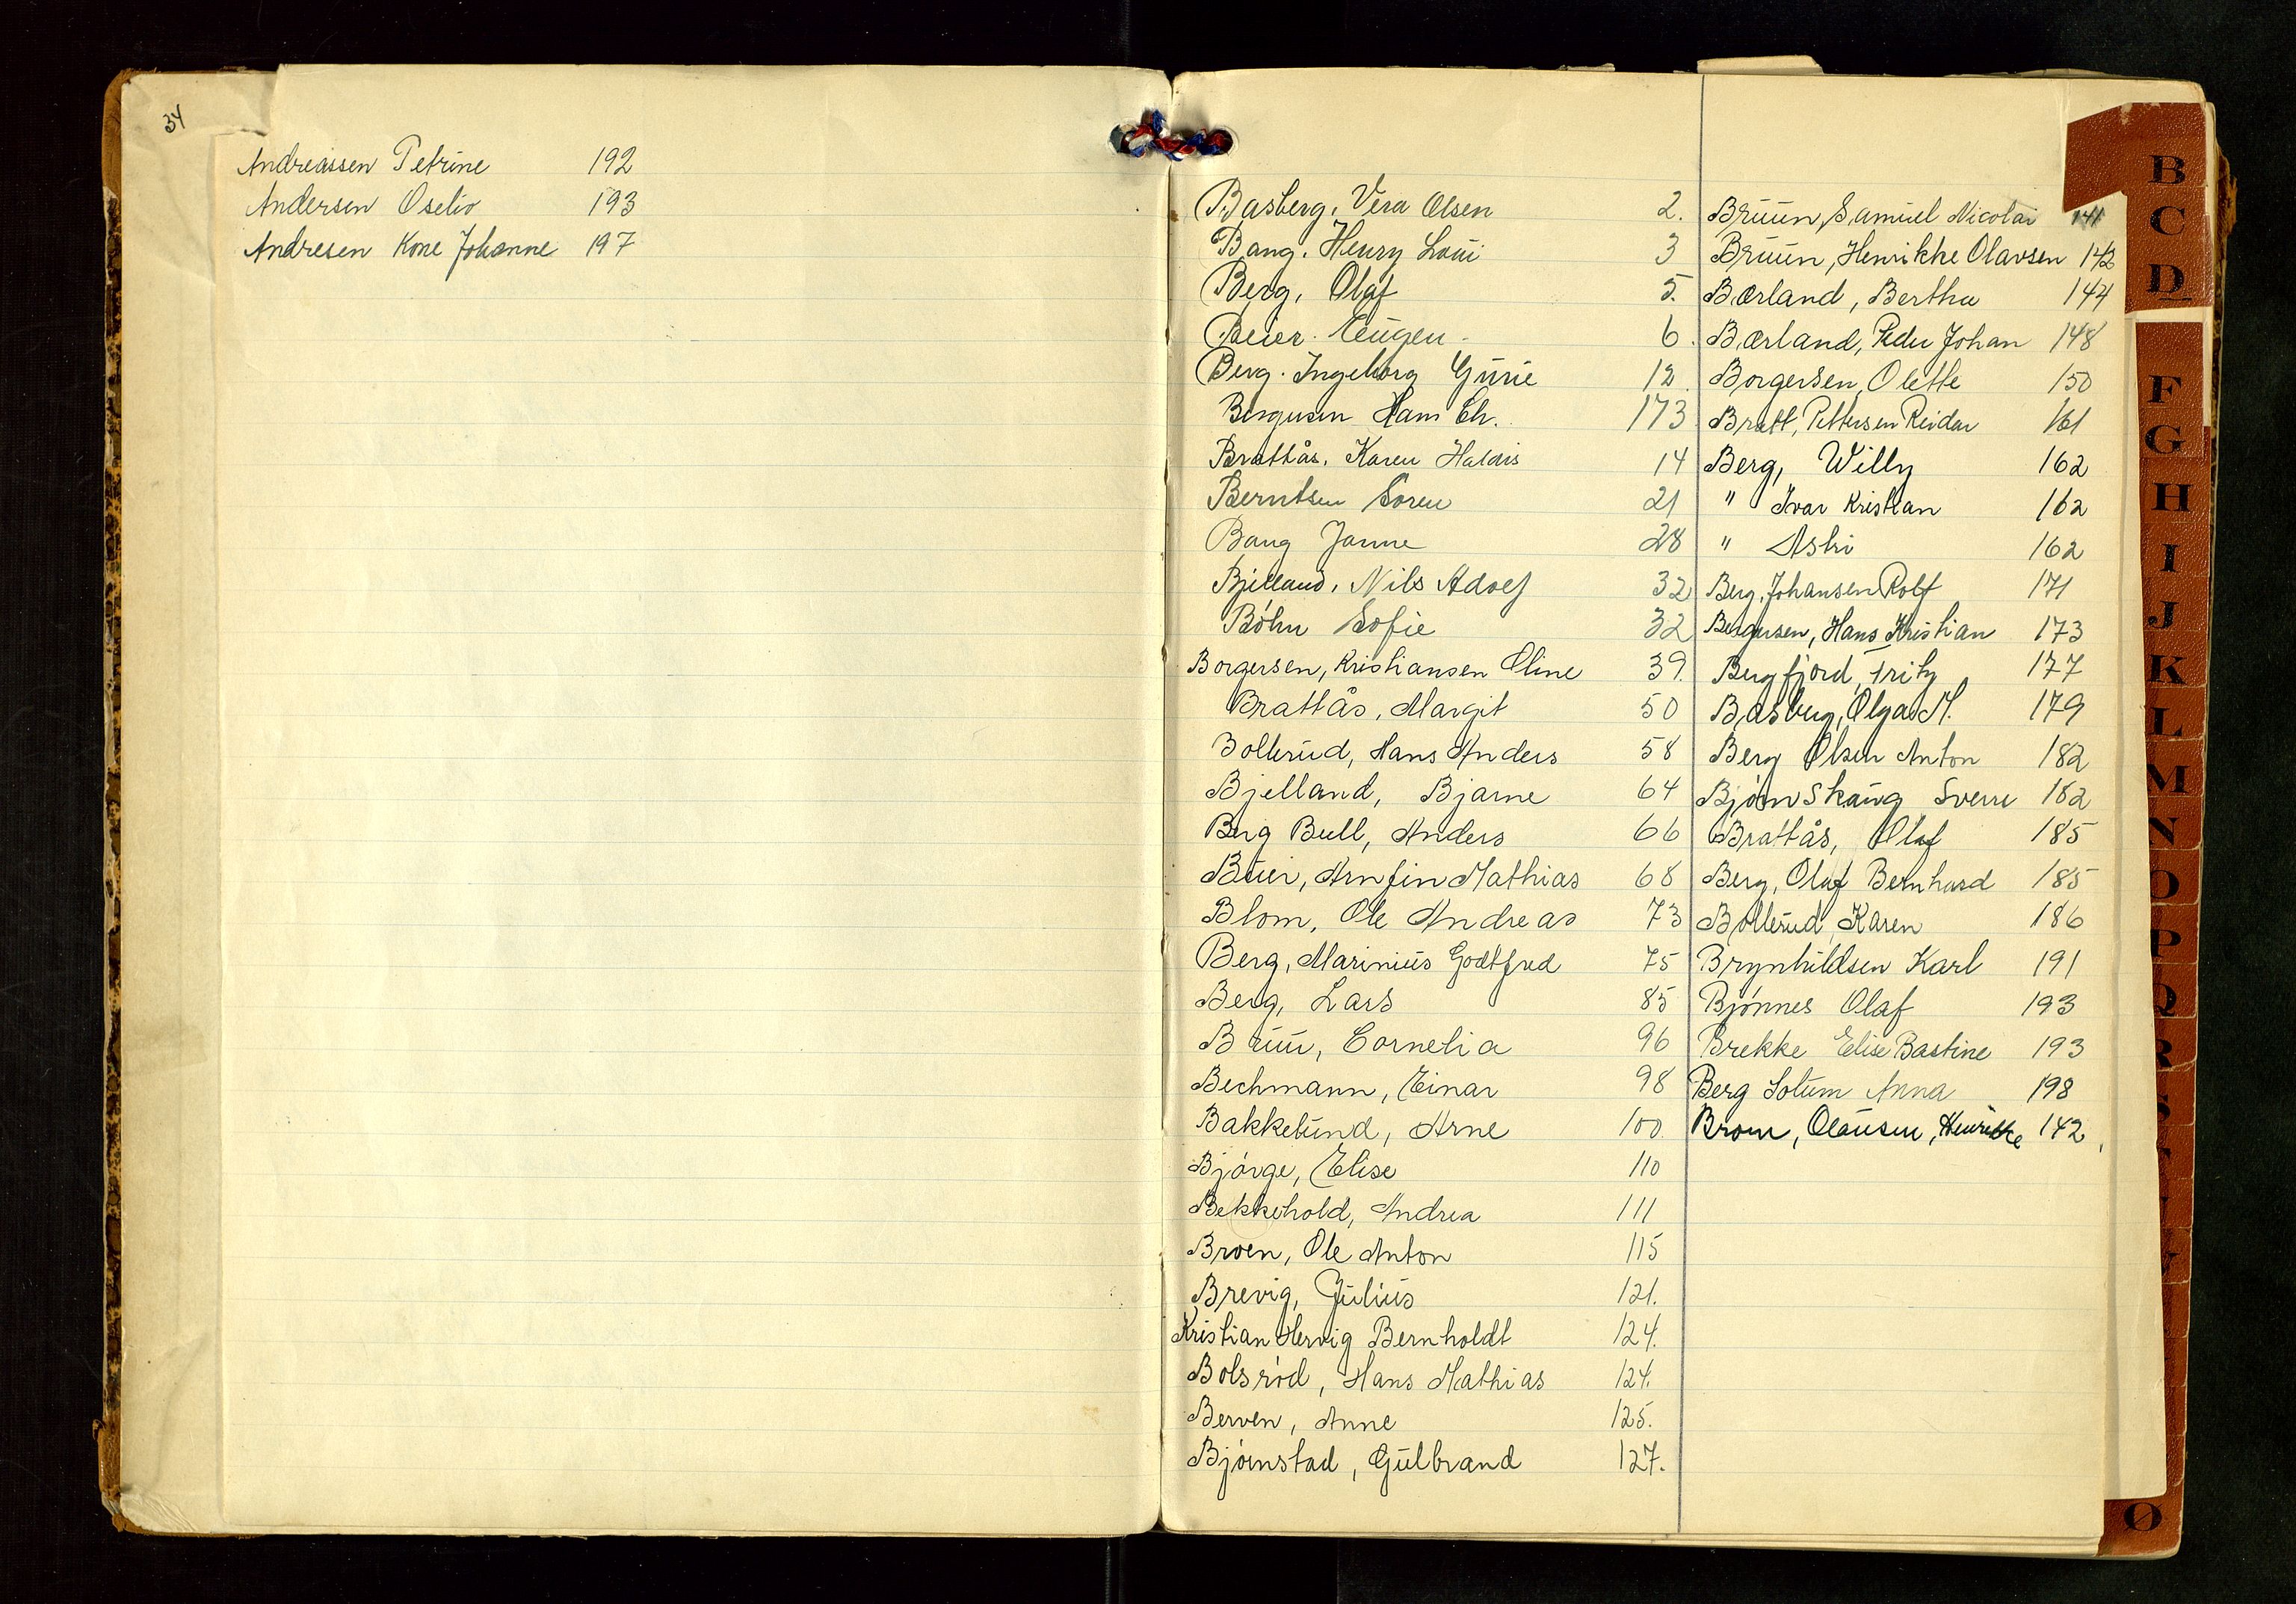 34
Andreassen Petrine 192
Andersen Oseliv 193
Andresen Kone Johanne 197
Basberg, Vera Olsen 2.
Bang. Henry Loui 3
Berg, Olaf 5.
Beier. Eugen. 6.
Berg. Ingeborg Gurie 12.
Bergusen Hans Ch. 173
Brattås, Karen Haldis 14
Berntsen Soren 21
Bang Janne 28
Bjelland, Nils Adolf 32
Böhn Sofie 32
Borgersen, Kristiansen Oline 39.
Brattås, Margit 50
Bollerud, Hans Anders 58
Bjelland, Bjarne 64
Berg Bull, Anders 66
Buer, Arnfin Mathias 68
Blom, Ole Andreas 73
Berg, Marinius Godtfred 75
Berg, Lars 85
Bruu, Cornelia 96
Bechmann, Einar 98
Bakkelund, Arne 100.
Bjørge, Elise 110
Bekkehold, Andrea 111
Broen, Ole Anton 115
Brevig, Julius 121.
Kristian Hervig Bernholdt 124.
Bolsrød, Hans Mathias 124.
Berven, Anne 125.
Bjørnstad, Gulbrand 127.
Bruun, Samuel Nicolai 141
Bruun, Henrikke Olavsen 142
Bærland, Bertha 144
Bærland, Peder Johan 148
Borgersen, Olette 150
Bratt, Pettersen Reidar 161
Berg, Willy 162
" Ivar Kristian 162
" Aslri 162
Berg, Johansen Rolf 171
Bergusen, Hans Kristian 173
Bergfjord, Fritz 177
Basberg, Olga M. 179
Berg Olsen Anton 182
Bjørn Skaug Sverre 182
Brattås, Olaf 185
Berg, Olaf Bernhard 185
Bollerud, Karen 186
Brynhildsen Karl 191
Bjønnes Olaf 193
Brekke Elise Bastine 193
Berg Solum Anna 198
Broun, Olausen, Henrikke 142
B
C
D
F
G
H
I
J
K
L
M
N
O
P
Q
R
S
Ø